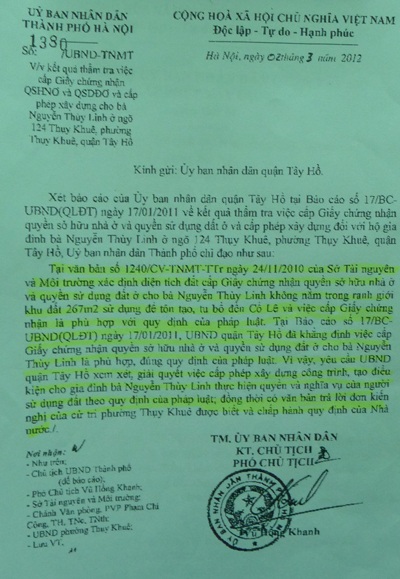 UỶ BAN NHÂN DÂN
THÀNH PHỐ HÀ NỘI
CỘNG HOÀ XÃ HỘI CHỦ NGHĨA VIỆT NAM
Độc lập - Tự do - Hạnh phúc
Số: 1380 /UBND-TNMT
Hà Nội, ngày 02 tháng 3 năm 2012
V/v kết quả thẩm tra việc
cấp Giấy chứng nhận
QSHNƠ và QSDĐƠ và cấp
phép xây dựng cho bà
Nguyễn Thùy Linh ở ngõ
124 Thụy Khuê, phường
Thụy Khuê, quận Tây Hồ
Kính gửi: Ủy ban nhân dân quận Tây Hồ.
Xét báo cáo của Ủy ban nhân dân quận Tây Hồ tại Báo cáo số 17/BC-
UBND(QLĐT) ngày 17/01/2011 về kết quả thẩm tra việc cấp Giấy chứng nhận
quyền sở hữu nhà ở và quyền sử dụng đất ở và cấp phép xây dựng đối với hộ gia
đình bà Nguyễn Thùy Linh ở ngõ 124 Thụy Khuê, phường Thụy Khuê, quận Tây
Hồ, Uỷ ban nhân dân Thành phố có chỉ đạo như sau:
Tại văn bản số 1240/CV-TNMT-TTr ngày 24/11/2010 của Sở Tài nguyên
và Môi trường xác định diện tích đất cấp Giấy chứng nhận quyền sở hữu nhà ở
và quyền sử dụng đất ở cho bà Nguyễn Thùy Linh không nằm trong ranh giới
khu đất 267m2 sử dụng để tôn tạo, tu bổ đền Cô Lê và việc cấp Giấy chứng
nhận là phù hợp với quy định của pháp luật. Tại Báo cáo số 17/BC-
UBND(QLĐT) ngày 17/01/2011, UBND quận Tây Hồ đã khẳng định việc cấp
Giấy chứng nhận quyền sở hữu nhà ở và quyền sử dụng đất ở cho bà Nguyễn
Thùy Linh là phù hợp, đúng quy định của pháp luật. Vì vậy, yêu cầu UBND
quận Tây Hồ xem xét, giải quyết việc cấp phép xây dựng công trình, tạo điều
kiện cho gia đình bà Nguyễn Thùy Linh thực hiện quyền và nghĩa vụ của người
sử dụng đất theo quy định của pháp luật; đồng thời có văn bản trả lời đơn kiến
nghị của cử tri phường Thụy Khuê được biết và chấp hành quy định của Nhà
nước./.
Nơi nhận:
- Như trên;
- Chủ tịch UBND Thành phố
(để báo cáo);
- Phó Chủ tịch Vũ Hồng Khanh;
- Sở Tài nguyên và Môi trường;
- Chánh Văn phòng, PVP Phạm Chí
Công, TH, TNc, TNth;
- UBND phường Thụy Khuê;
- Lưu VT.
TM. ỦY BAN NHÂN DÂN
KT. CHỦ TỊCH
PHÓ CHỦ TỊCH
Vũ Hồng Khanh